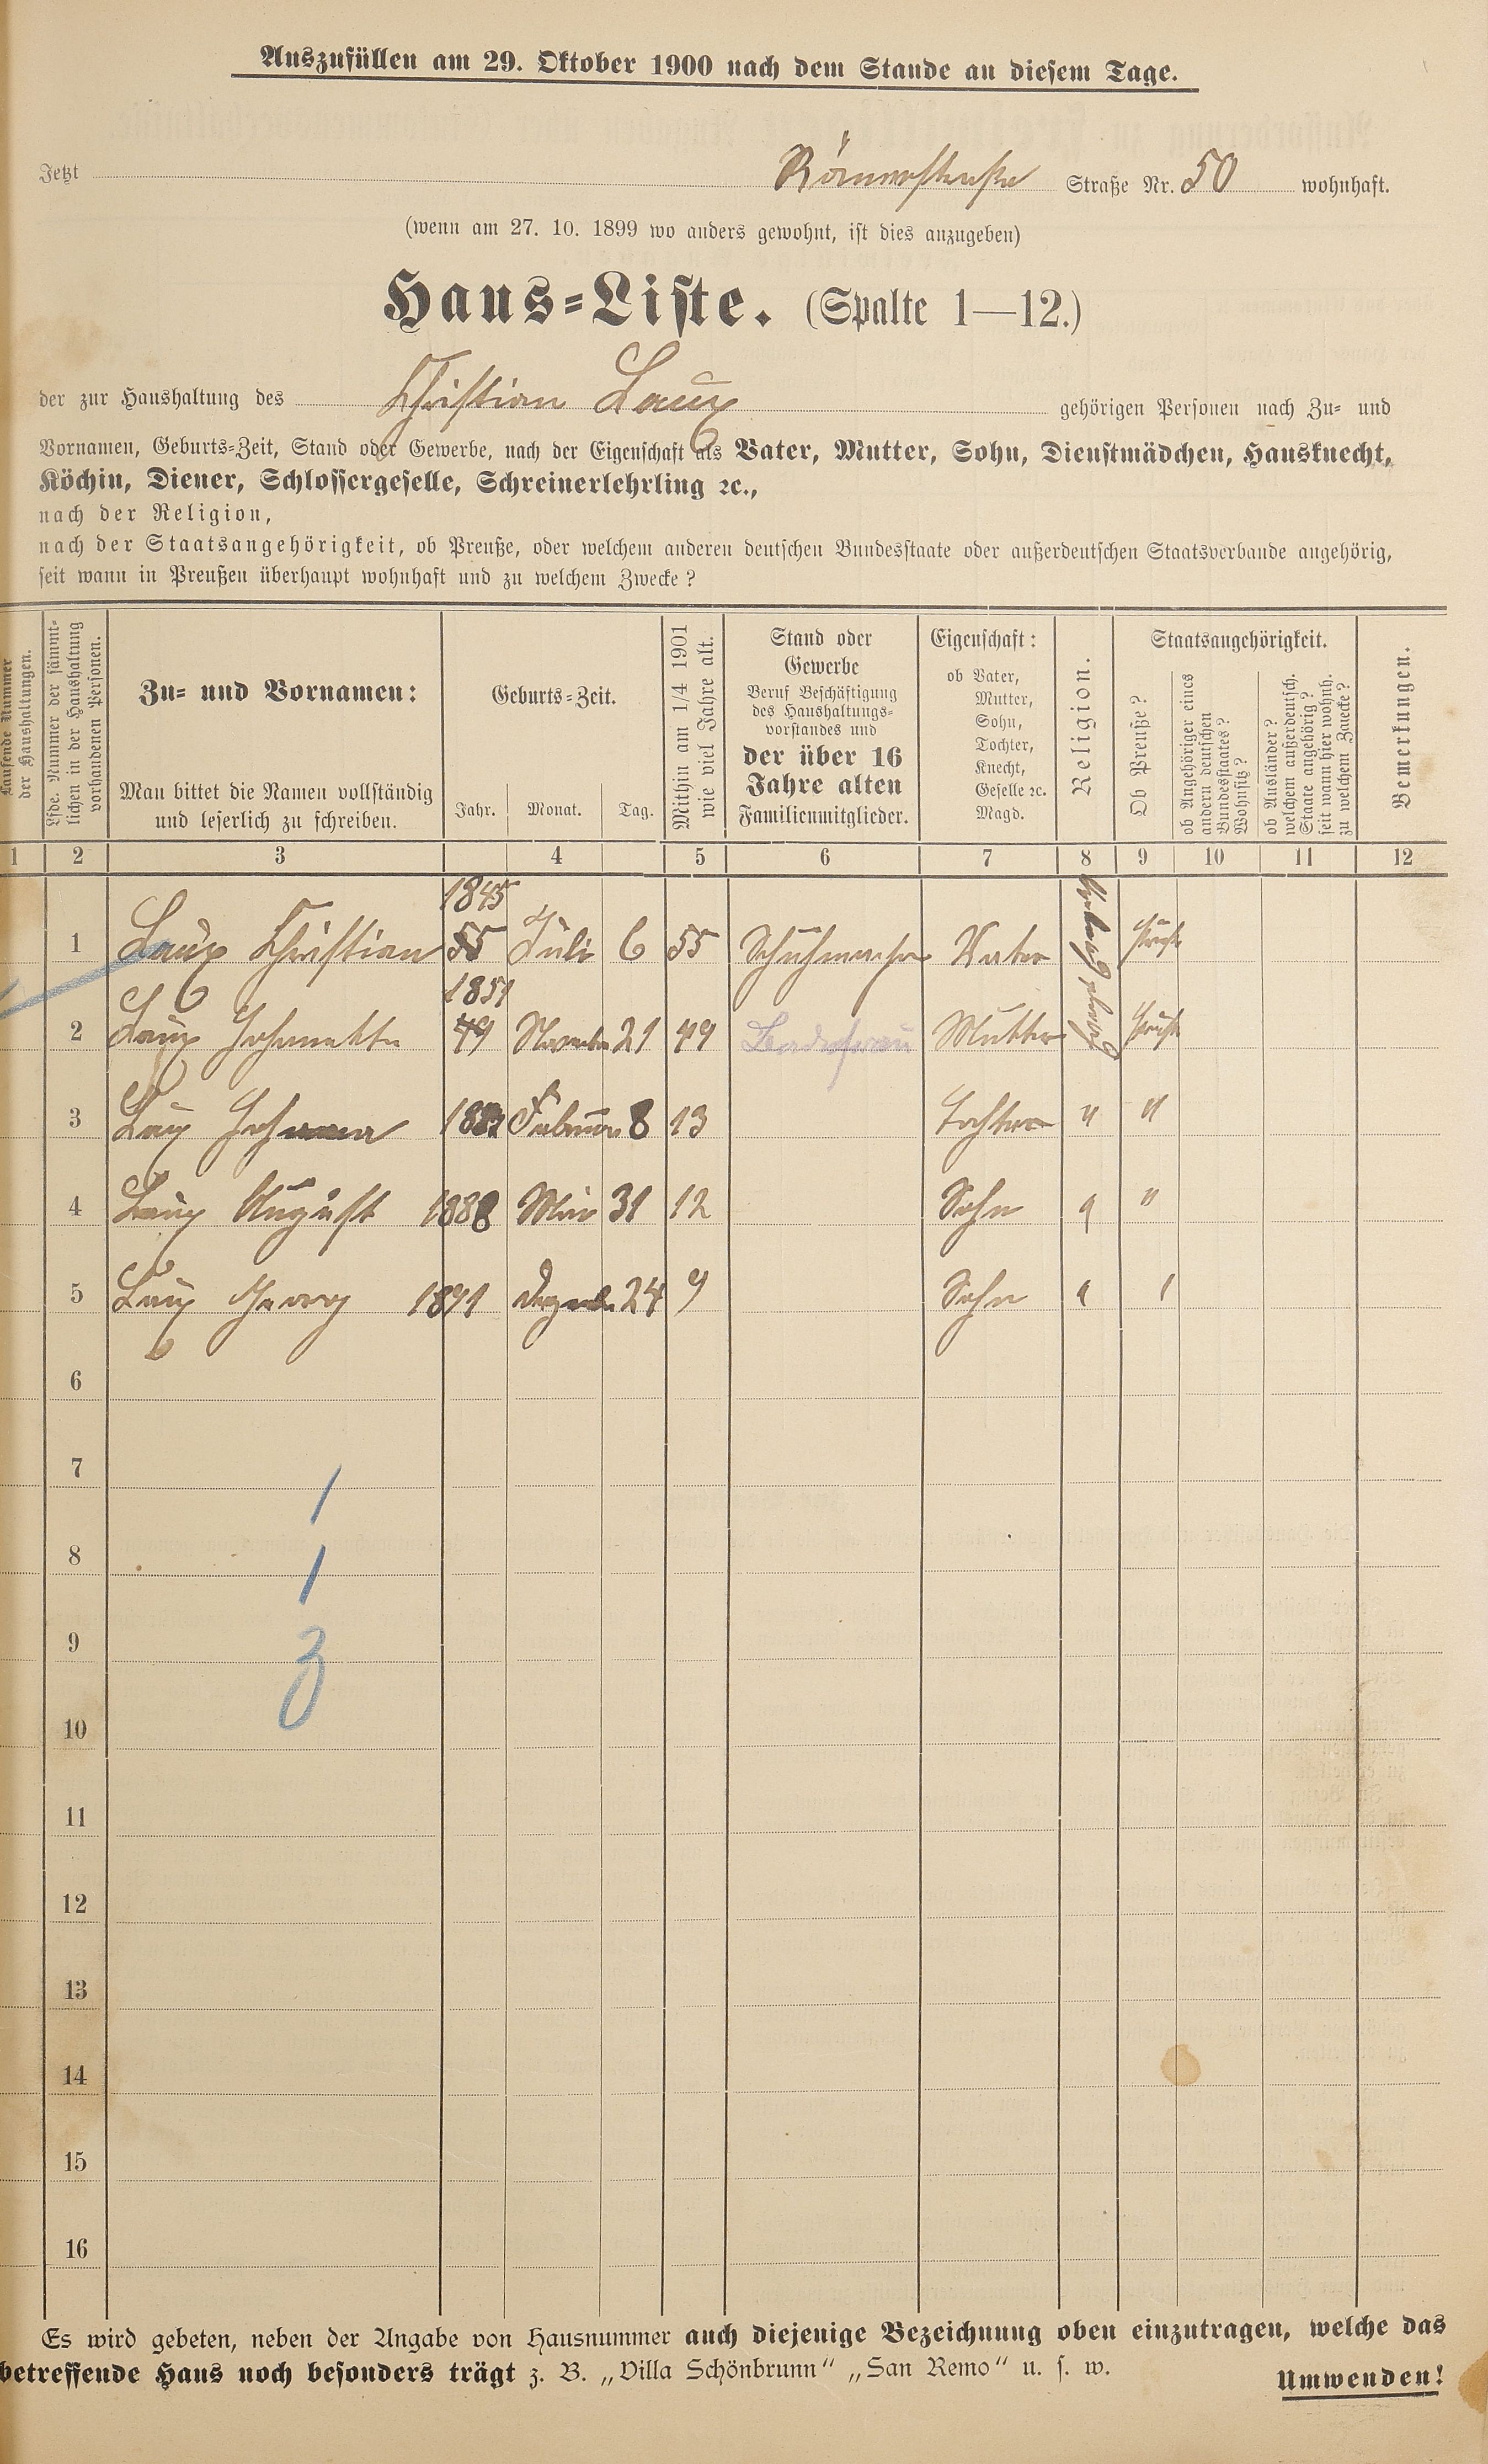 Auszufüllen am 29. Oktober 1900 nach dem Stande an diesem Tage.
Jetzt Römerstraße Straße Nr. 50 wohnhaft.
(wenn am 27. 10. 1899 wo anders gewohnt, ist dies anzugeben)
Haus-Liste. (Spalte 1—12.)
der zur Haushaltung des Christian Laux gehörigen Personen nach Zu- und
Vornamen, Geburts-Zeit, Stand oder Gewerbe, nach der Eigenschaft als Vater, Mutter, Sohn, Dienstmädchen, Hausknecht,
Köchin, Diener, Schlossergeselle, Schreinerlehrling ꝛc.,
nach der Religion,
nach der Staatsangehörigkeit, ob Preuße, oder welchem anderen deutschen Bundesstaate oder außerdeutschen Staatsverbande angehörig,
seit wann in Preußen überhaupt wohnhaft und zu welchem Zwecke?
Laufende Nummer
der Haushaltungen.
Lfde. Nummer der sämmt-
lichen in der Haushaltung
vorhandenen Personen.
Zu- und Vornamen:
Man bittet die Namen vollständig
und leserlich zu schreiben.
Geburts-Zeit.
Jahr. Monat. Tag.
Mithin am 1/4 1901
wie viel Jahre alt.
Stand oder
Gewerbe
Beruf Beschäftigung
des Haushaltungs-
vorstandes und
der über 16
Jahre alten
Familienmitglieder.
Eigenschaft:
ob Vater,
Mutter,
Sohn,
Tochter,
Knecht,
Geselle ꝛc.
Magd.
Religion.
Staatsangehörigkeit.
Ob Preuße?
ob Angehöriger eines
andern deutschen
Bundesstaates?
Wohnsitz?
ob Ausländer?
welchem außerdeutsch.
Staate angehörig?
seit wann hier wohnh.
zu welchem Zwecke?
Bemerkungen.
1 2 3 4 5 6 7 8 9 10 11 12
1845
1 Laux Christian 55 Juli 6 55 Schuhmacher Vater
1851
2 Laux 49 November 21 49 Mutter
3 Laux Johanna Februar 8 13 Tochter " "
4 Laux August 1888 Mai 31 12 Sohn " "
5 Laux Georg 1891 Dezember 24 9 Sohn " "
6
7
8
9
10
11
12
13
14
15
16
Es wird gebeten, neben der Angabe von Hausnummer auch diejenige Bezeichnung oben einzutragen, welche das
betreffende Haus noch besonders trägt z. B. „Villa Schönbrunn“ „San Remo“ u. s. w.
Umwenden!